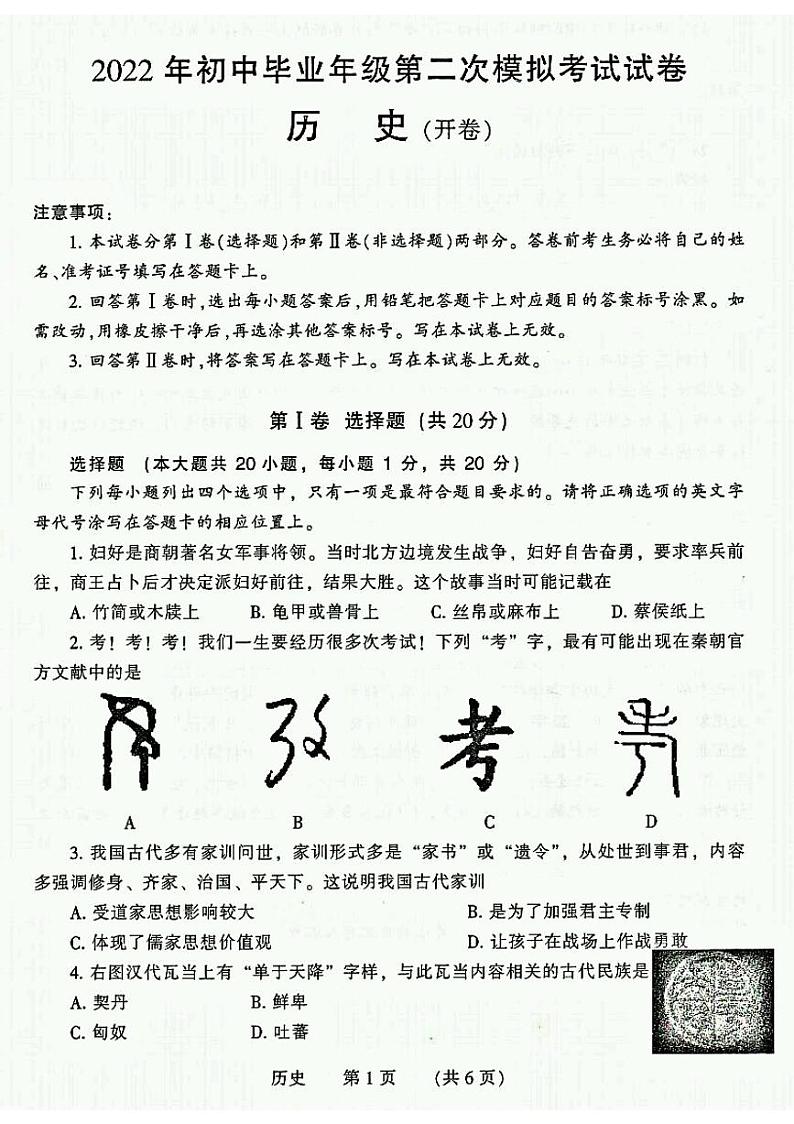 2022 年初中毕业年级第二次模拟考试试卷
历 史 (开卷)
注意事项：
1. 本试卷分第Ⅰ卷(选择题)和第Ⅱ卷(非选择题)两部分。答卷前考生务必将自己的姓
名、准考证号填写在答题卡上。
2. 回答第Ⅰ卷时,选出每小题答案后,用铅笔把答题卡上对应题目的答案标号涂黑。如
需改动,用橡皮擦干净后,再选涂其他答案标号。写在本试卷上无效。
3. 回答第Ⅱ卷时,将答案写在答题卡上。写在本试卷上无效。
第Ⅰ卷 选择题（共 20 分）
选择题 （本大题共 20 小题，每小题 1 分，共 20 分）
下列每小题列出四个选项中，只有一项是最符合题目要求的。请将正确选项的英文字
母代号涂写在答题卡的相应位置上。
1. 妇好是商朝著名女军事将领。当时北方边境发生战争，妇好自告奋勇，要求率兵前
往，商王占卜后才决定派妇好前往，结果大胜。这个故事当时可能记载在
A. 竹简或木牍上 B. 龟甲或兽骨上 C. 丝帛或麻布上 D. 蔡侯纸上
2. 考！考！考！我们一生要经历很多次考试！下列“考”字，最有可能出现在秦朝官
方文献中的是
考
A B C D
3. 我国古代多有家训问世，家训形式多是“家书”或“遗令”，从处世到事君，内容
多强调修身、齐家、治国、平天下。这说明我国古代家训
A. 受道家思想影响较大 B. 是为了加强君主专制
C. 体现了儒家思想价值观 D. 让孩子在战场上作战勇敢
4. 右图汉代瓦当上有“单于天降”字样，与此瓦当内容相关的古代民族是
A. 契丹 B. 鲜卑
C. 匈奴 D. 吐蕃
历史 第 1 页 (共 6 页)